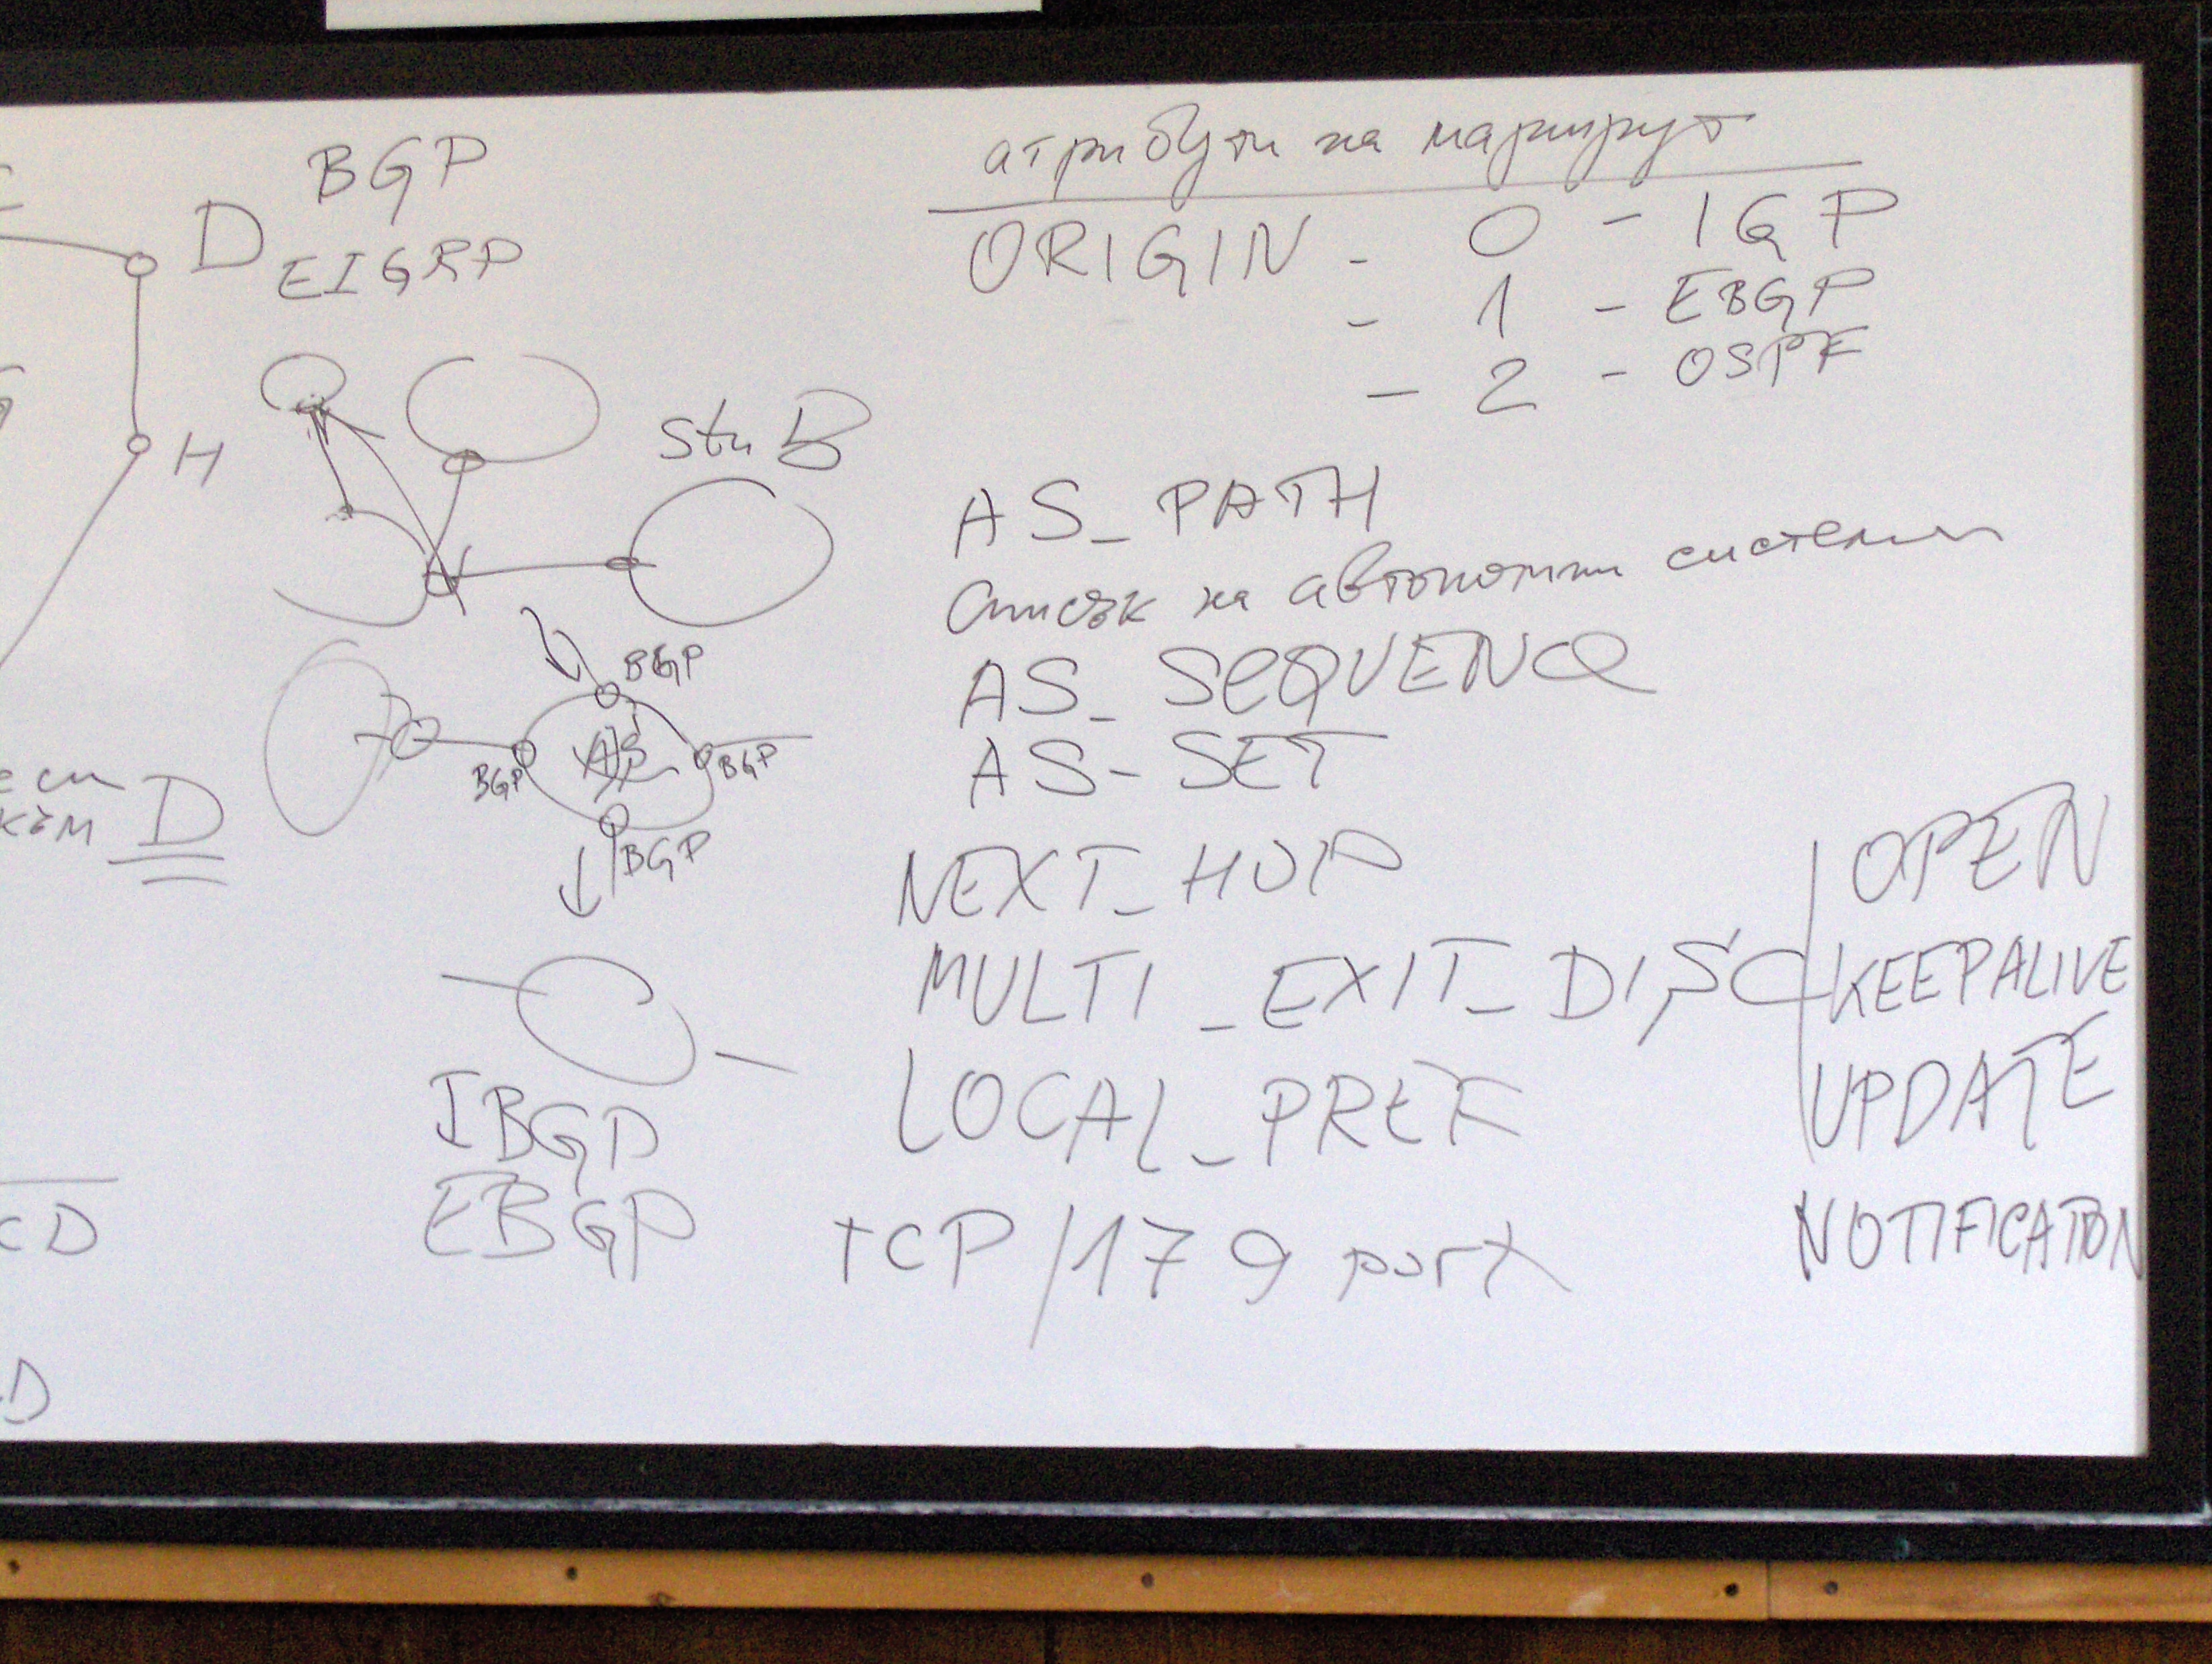 BGP
D
EIGRP
H
stuB
BGP
AS
BGP
BGP
BGP
към D
IBGP
EBGP
CD
D
атрибути на маршрут
ORIGIN - 0 - IGP
- 1 - EBGP
- 2 - OSPF
AS_PATH
списък на автономни системи
AS_SEQUENCE
AS-SET
NEXT_HOP
MULTI_EXIT_DISC
LOCAL_PREF
TCP/179 port
OPEN
KEEPALIVE
UPDATE
NOTIFICATION